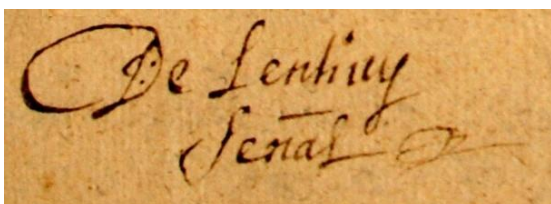 De Lenhuy
Senal